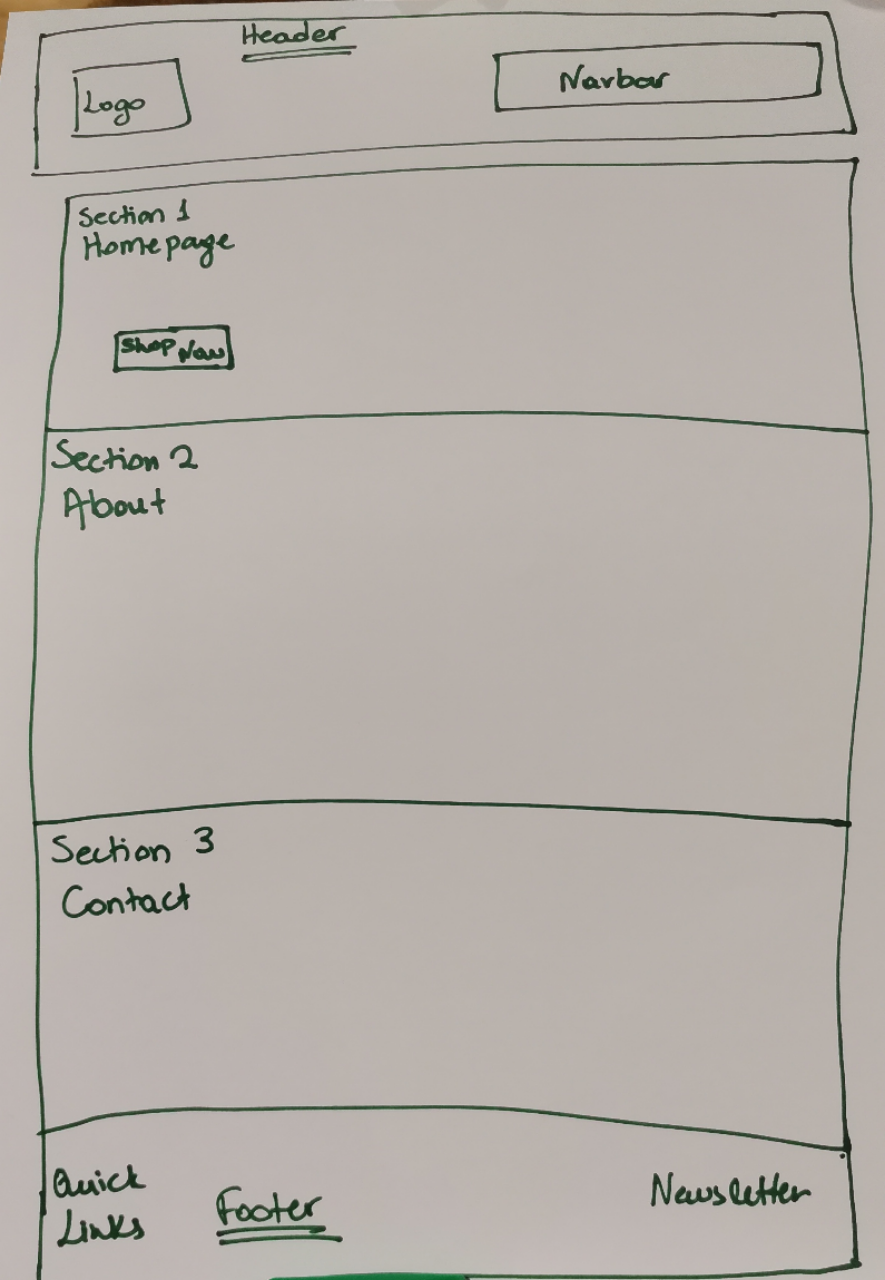 Header
Logo
Navbar
Section 1
Homepage
Shop Now
Section 2
About
Section 3
Contact
Quick
Links
Footer
Newsletter